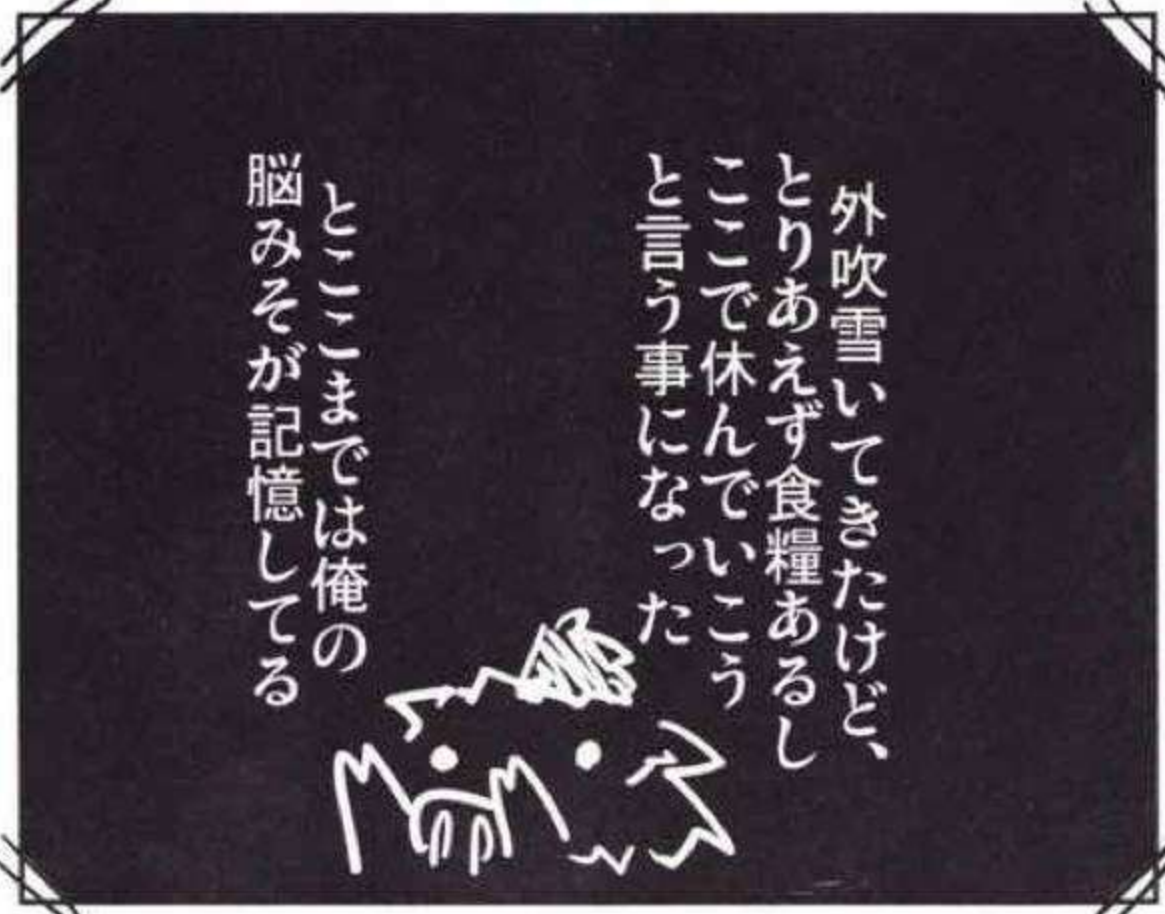 外吹雪いてきたけど、
とりあえず食糧あるし
ここで休んでいこう
と言う事になった
とここまでは俺の
脳みそが記憶してる